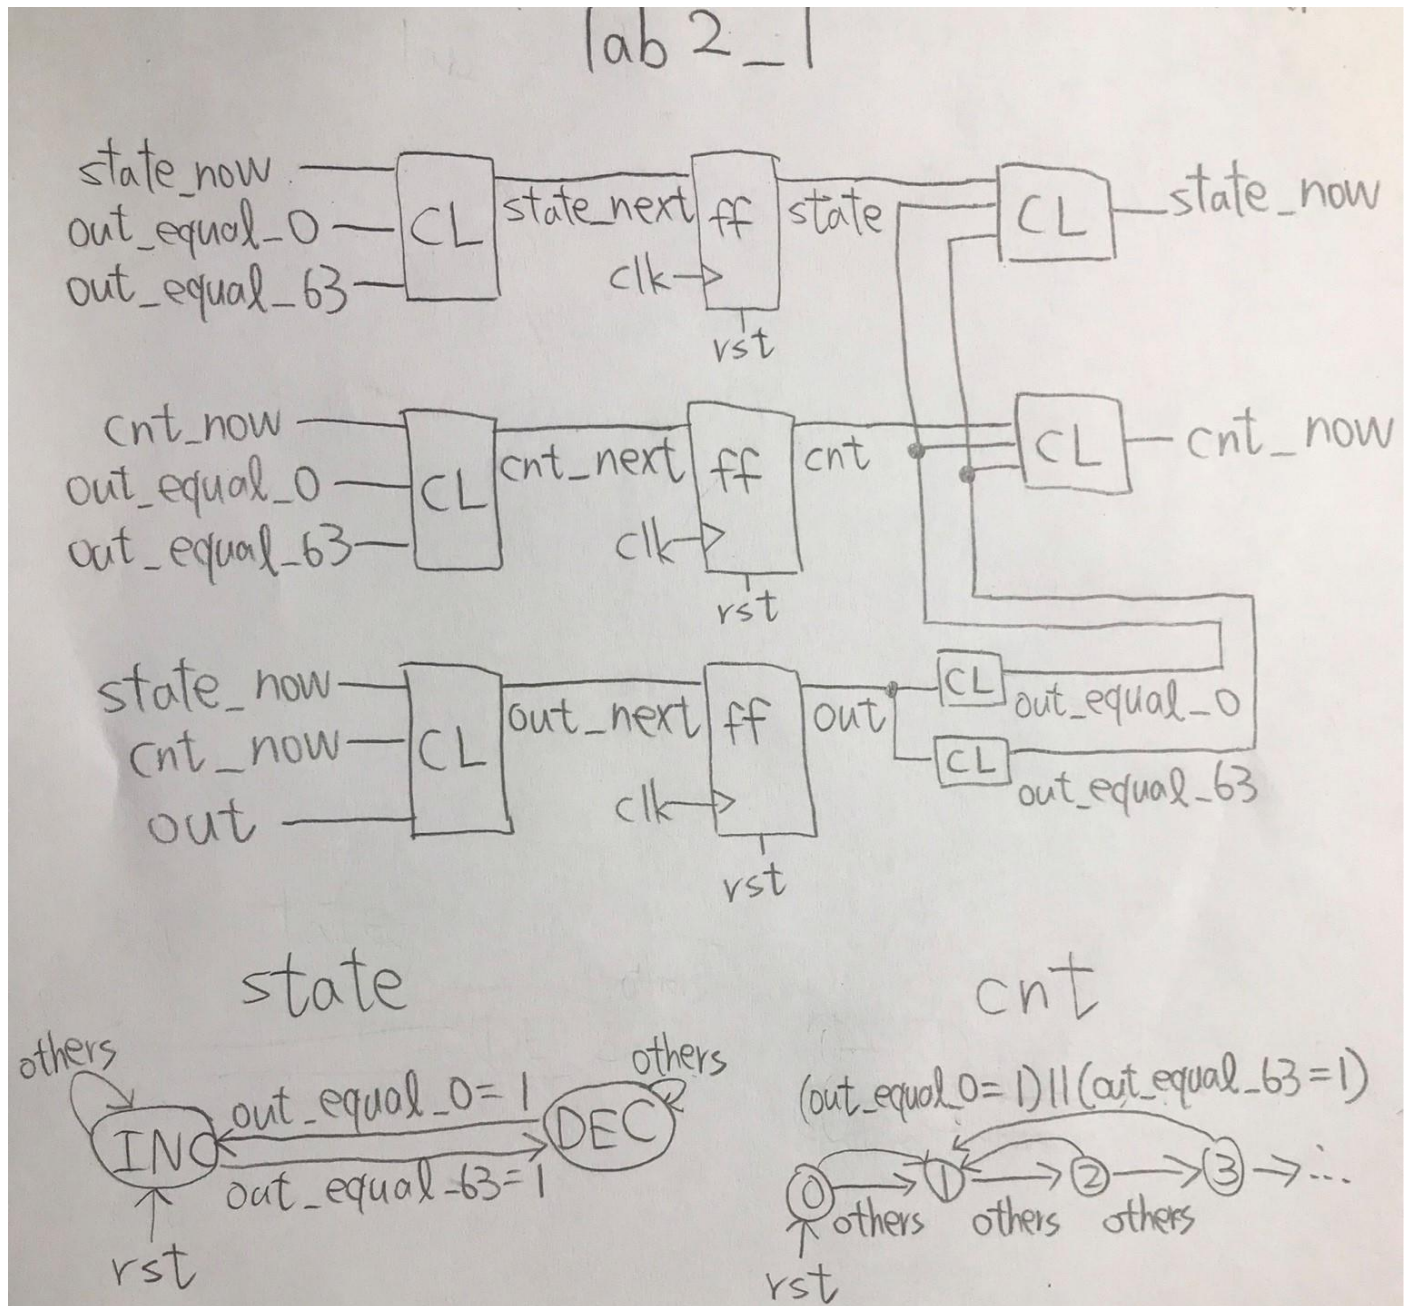 lab 2_1
state_now
out_equal_0
out_equal_63
CL
state_next
ff
clk
rst
state
CL
state_now
cnt_now
out_equal_0
out_equal_63
CL
cnt_next
ff
clk
rst
cnt
CL
cnt_now
state_now
cnt_now
out
CL
out_next
ff
clk
rst
out
CL
out_equal_0
CL
out_equal_63
state
others
INC
out_equal_0=1
out_equal_63=1
DEC
others
rst
cnt
(out_equal_0=1)||(out_equal_63=1)
0
others
1
others
2
others
3
...
rst